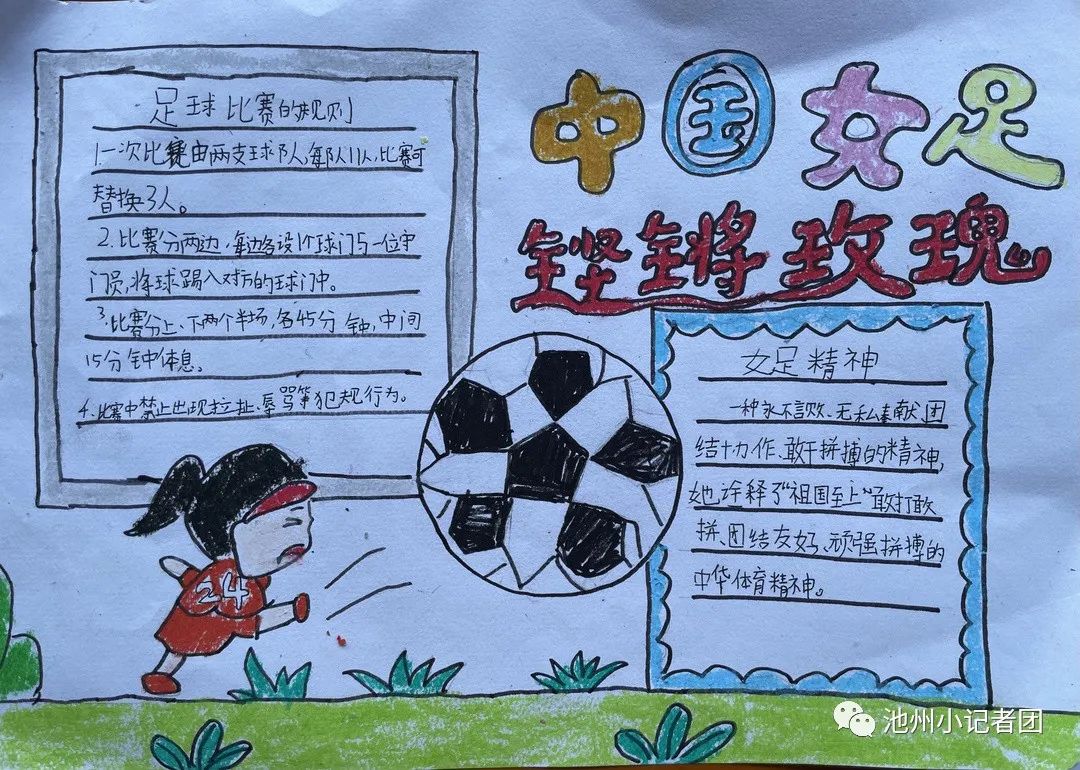 中国女足
铿锵玫瑰
足球比赛的规则
1.一次比赛由两支球队,每队11人,比赛可
替换3人。
2.比赛分两边,每边各设1个球门与一位守
门员,将球踢入对方的球门中。
3.比赛分上、下两个半场,各45分钟,中间
15分钟休息。
4.比赛中禁止出现拉扯、辱骂等犯规行为。
女足精神
一种永不言败、无私奉献、团
结协作、敢于拼搏的精神,
她诠释了“祖国至上”敢打敢
拼、团结友好、顽强拼搏的
中华体育精神。
24
池州小记者团